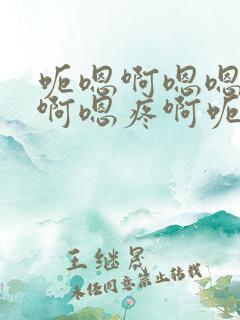 呃嗯啊嗯嗯
啊嗯疼啊呃
王继晟
未经同意禁止转载